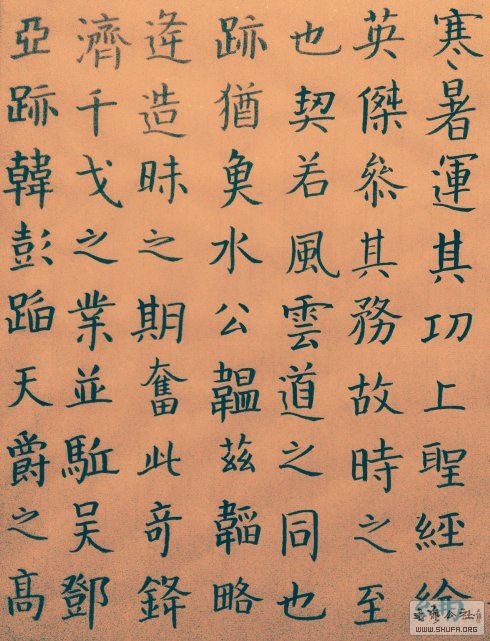 寒暑運其功上聖經綸
英傑叅其務故時之至
也契若風雲道之同也
跡猶魚水公韞茲韜略
逄造昧之期奮此奇鋒
濟千戈之業並駈吳鄧
亞跡韓彭蹈天爵之髙
WWW.SHUFA.ORG